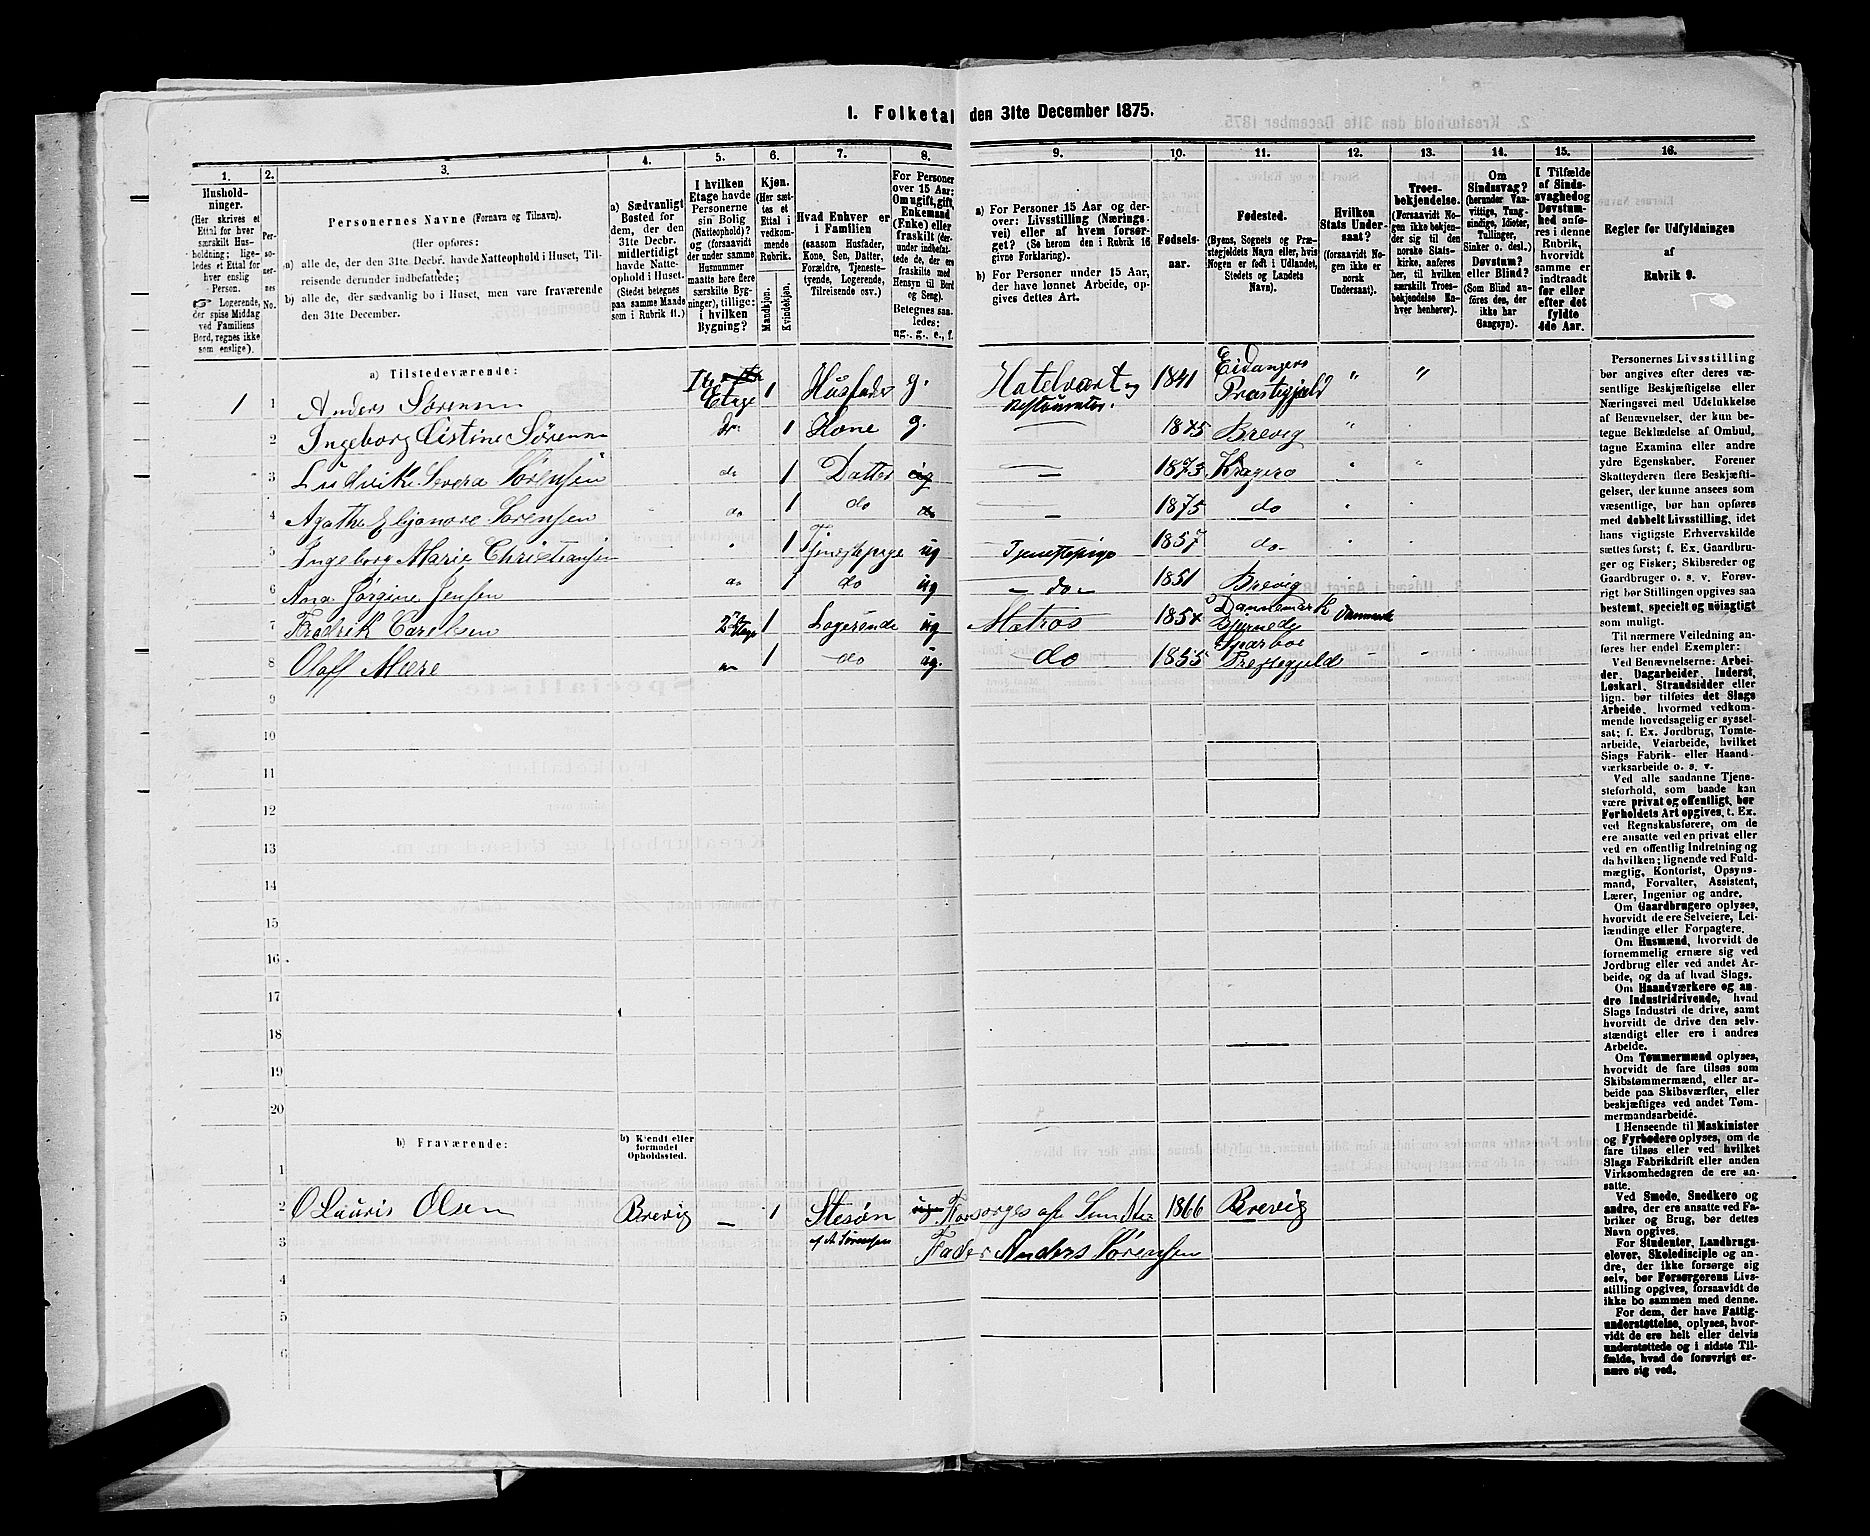 1. Folketal den 31te December 1875.
1.
2.
3.
4.
5.
6.
7.
8.
9.
10.
11.
12.
13.
14.
15.
16.
Hushold-
ninger.
(Her skrives et
Ettal for hver
særskilt Hus-
holdning; lige-
ledes et Ettal for
hver enslig
Person.
☞ Logerende,
der spise Middag
ved Familiens
Bord, regnes ikke
som enslige).
Per-
so-
ner-
nes
No.
Personernes Navne (Fornavn og Tilnavn).
(Her opføres:
a) alle de, der den 31te Decbr. havde Natteophold i Huset, Til-
reisende derunder indbefattede;
b) alle de, der sædvanlig bo i Huset, men vare fraværende
den 31te December.
a) Sædvanligt
Bosted for
dem, der den
31te Decbr.
midlertidigt
havde Natte-
ophold i Huset.
(Stedet betegnes
paa samme Maade
som i Rubrik 11.)
I hvilken
Etage havde
Personerne
sin Bolig
(Natteophold)?
og (forsaavidt
der under samme
Husnummer
maatte høre flere
særskilte Byg-
ninger), tillige:
i hvilken
Bygning?
Kjøn.
(Her sæt-
tes et
Ettal i
vedkom-
mende
Rubrik.
Mandkjøn.
Kvindekjøn.
Hvad Enhver er
i Familien
(saasom Husfader,
Kone, Søn, Datter,
Forældre, Tjeneste-
tyende, Logerende,
Tilreisende osv.)
For Personer
over 15 Aar:
Om ugift, gift,
Enkemand
(Enke) eller
fraskilt (der-
under indbefat-
tede de, der ere
fraskilte med
Hensyn til Bord
og Seng).
Betegnes saa-
ledes:
ug., g., e., f.
a) For Personer 15 Aar og der-
over: Livsstilling (Nærings-
vei) eller af hvem forsør-
get? (Se herom den i Rubrik 16
givne Forklaring).
b) For Personer under 15 Aar,
der have lønnet Arbeide, op-
gives dettes Art.
Fødsels-
aar.
Fødested.
(Byens, Sognets og Præ-
stegjeldets Navn eller, hvis
Nogen er født i Udlandet,
Stedets og Landets
Navn).
Hvilken
Stats Under-
saat?
(forsaavidt No-
gen ikke er
norsk
Undersaat).
Troes-
bekjendelse.
(Forsaavidt No-
gen ikke bekjen-
der sig til den
norske Stats-
kirke, anføres
her, til hvilken
særskilt Troes-
bekjendelse En-
hver henhører).
Om
Sindssvag?
(herunder Van-
vittige, Tung-
sindige, Idioter,
Tullinger,
Sinker o. desl.)
Døvstum?
eller Blind?
(Som Blind an-
føres den, der
ikke har
Gangsyn).
I Tilfælde
af Sinds-
svaghed og
Døvstum-
hed anfø-
res i denne
Rubrik,
hvorvidt
samme er
indtraadt
før eller
efter det
fyldte
4de Aar.
Regler for Udfyldningen
af
Rubrik 9.
a) Tilstedeværende:
1 1 Anders Sørensen Etage 1 Husfader g. Hotelvært og Restauratør. 1841 Eidangers Præstegjeld " "
2 Ingeborg Cistine Sørensen do 1 Kone g. — 1845 Brevig "
3 Ludvikke Severa Sørensen do 1 Datter ug — 1873 Kragerø " "
4 Agathe Elijonore Sørensen do 1 do do — 1875 do "
5 Ingeborg Marie Christiansen " 1 Tjenestepige ug Tjenestepige 1857 do
6 Ana Jørgine Jensen do 1 do ug — do — 1851 Brevig
7 Fredrik Carelsen 2den Etage 1 Logerende ug Matros 1854 Dannemark Danmark
8 Olaff Mære 1 do ug. do 1855 Sparboe Prestegjeld
9
10
11
12
13
14
15
16
17
18
19
20
b) Fraværende:
b) Kjendt eller
formodet
Opholdssted.
1
2 O Lauris Olsen Brevig — 1 Stesøn af A Sørensen ug Forsørges af Sin Ste 1866 Brevig
3 Fader Anders Sørensen
4
5
6
Personernes Livsstilling
bør angives efter deres væ-
sentlige Beskjæftigelse eller
Næringsvei med Udelukkelse
af Benævnelser, der kun be-
tegne Beklædelse af Ombud,
tagne Examina eller andre
ydre Egenskaber. Forener
Skatteyderen flere Beskjæfti-
gelser, der kunne ansees som
væsentlige, bør han opføres
med dobbelt Livsstilling, idet
hans vigtigste Erhvervskilde
sættes først; f. Ex. Gaardbru-
ger og Fisker; Skibsreder og
Gaardbruger o. s. v. Forøv-
rigt bør Stillingen opgives saa
bestemt, specielt og nøiagtigt
som muligt.
Til nærmere Veiledning an-
føres her endel Exempler:
Ved Benævnelserne: Arbei-
der, Dagarbeider, Inderst,
Løskarl, Strandsidder eller
lign. bør tilføies det Slags
Arbeide, hvormed vedkom-
mende hovedsagelig er syssel-
sat; f. Ex. Jordbrug, Tomte-
arbeide, Veiarbeide, hvilket
Slags Fabrik- eller Haand-
værksarbeide o. s. v.
Ved alle saadanne Tjene-
steforhold, som baade kan
være privat og offentligt, bør
Forholdets Art opgives, t. Ex.
ved Regnskabsførere, om de
ere ansatte ved en privat eller
ved en offentlig Indretning og
da hvilken; lignende ved Fuld-
mægtig, Kontorist, Opsyns-
mand, Forvalter, Assistent,
Lærer, Ingeniør og andre.
Om Gaardbrugere oplyses,
hvorvidt de ere Selveiere, Lei-
lændinge eller Forpagtere.
Om Husmænd, hvorvidt de
fornemmelig ernære sig ved
Jordbrug eller ved andet Ar-
beide, og da af hvad Slags.
Om Haandværkere og an-
dre Industridrivende, hvad
Slags Industri de drive, samt
hvorvidt de drive den selv-
stændigt eller ere i andres
Arbeide.
Om Tømmermænd oplyses,
hvorvidt de fare tilsøs som
Skibstømmermænd, eller ar-
beide paa Skibsværfter, eller
beskjæftiges ved andet Tøm-
mermandsarbeide.
I Henseende til Maskinister
og Fyrbødere oplyses, om de
fare tilsøs eller ved hvilket
Slags Fabrikdrift eller anden
Virksomhedsgren de ere an-
satte.
Ved Smede, Snedkere og
andre, der ere ansatte ved Fa-
briker og Brug, bør dettes
Navn opgives.
For Studenter, Landbrugs-
elever, Skoledisciple og an-
dre, der ikke forsørge sig
selv, bør Forsørgerens Livs-
stilling opgives, forsaavidt de
ikke bo sammen med denne.
For dem, der have Fattig-
understøttelse, oplyses, hvor-
vidt de ere helt eller delvis
understøttede og i sidste Til-
fælde, hvad de forøvrigt er-
nære sig ved.